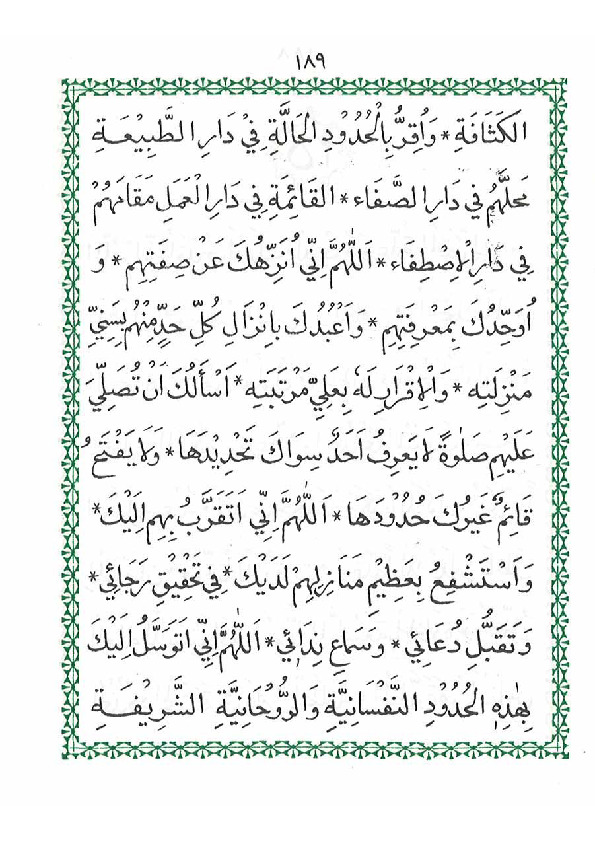 ١٨٩
الْكَثَافَةِ * وَاُقِرُّ بِالْحُدُوْدِ الْحَالَّةِ فِيْ دَارِ الطَّبِيْعَةِ
مَحَلَّهُمْ فِي دَارِ الصَّفَاء * الْقَائِمَةِ فِي دَارِ الْعَمَلِ مَقَامَهُمْ
فِي دَارِ الْاِصْطِفَاء * اَللّٰهُمَّ اِنِّي اُنَزِّهُكَ عَنْ صِفَتِهِم * وَ
اُوَحِّدُكَ بِمَعْرِفَتِهِم * وَاَعْبُدُكَ بِاِنْزَالِ كُلِّ حَدٍّ مِنْهُمْ بِسَنِيِّ
مَنْزِلَتِه * وَالْاِقْرَارِ لَهٗ بِعَلِيِّ مَرْتَبَتِه * اَسْأَلُكَ اَنْ تُصَلِّيَ
عَلَيْهِم صَلٰوةً لَا يَعْرِفُ اَحَدٌ سِوَاكَ تَحْدِيْدَهَا * وَلَا يَفْتَحُ
قَائِمٌ غَيْرُكَ حُدُوْدَهَا * اَللّٰهُمَّ اِنِّي اَتَقَرَّبُ بِهِم اِلَيْكَ *
وَاَسْتَشْفِعُ بِعَظِيْمِ مَنَازِلِهِمْ لَدَيْكَ * فِي تَحْقِيْقِ رَجَائِي *
وَتَقَبُّلِ دُعَائِي * وَسَمَاعِ نِدَائِي * اَللّٰهُمَّ اِنِّي اَتَوَسَّلُ اِلَيْكَ
بِهٰذِهِ الْحُدُوْدِ النَّفْسَانِيَّةِ وَالرُّوْحَانِيَّةِ الشَّرِيْفَةِ